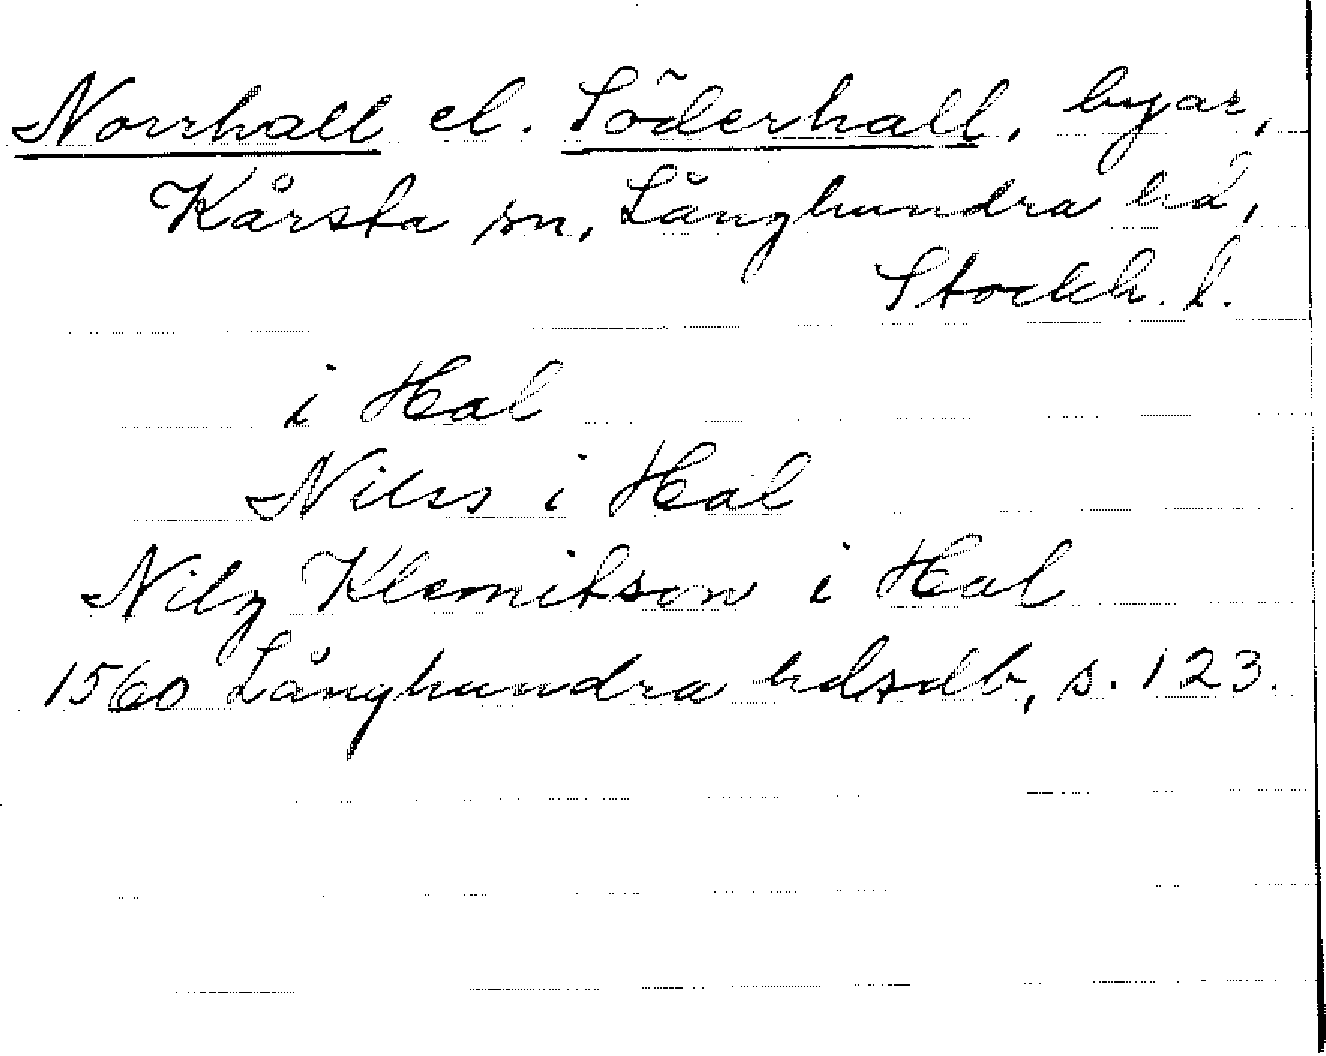 Norrhall el. Söderhall, byar,
Kårsta sn, Långhundra hd,
Stockh. l.
i Hal
Nilss i Hal
Nilz Klemitson i Hal
1560 Långhundra hdsdb, s. 123.